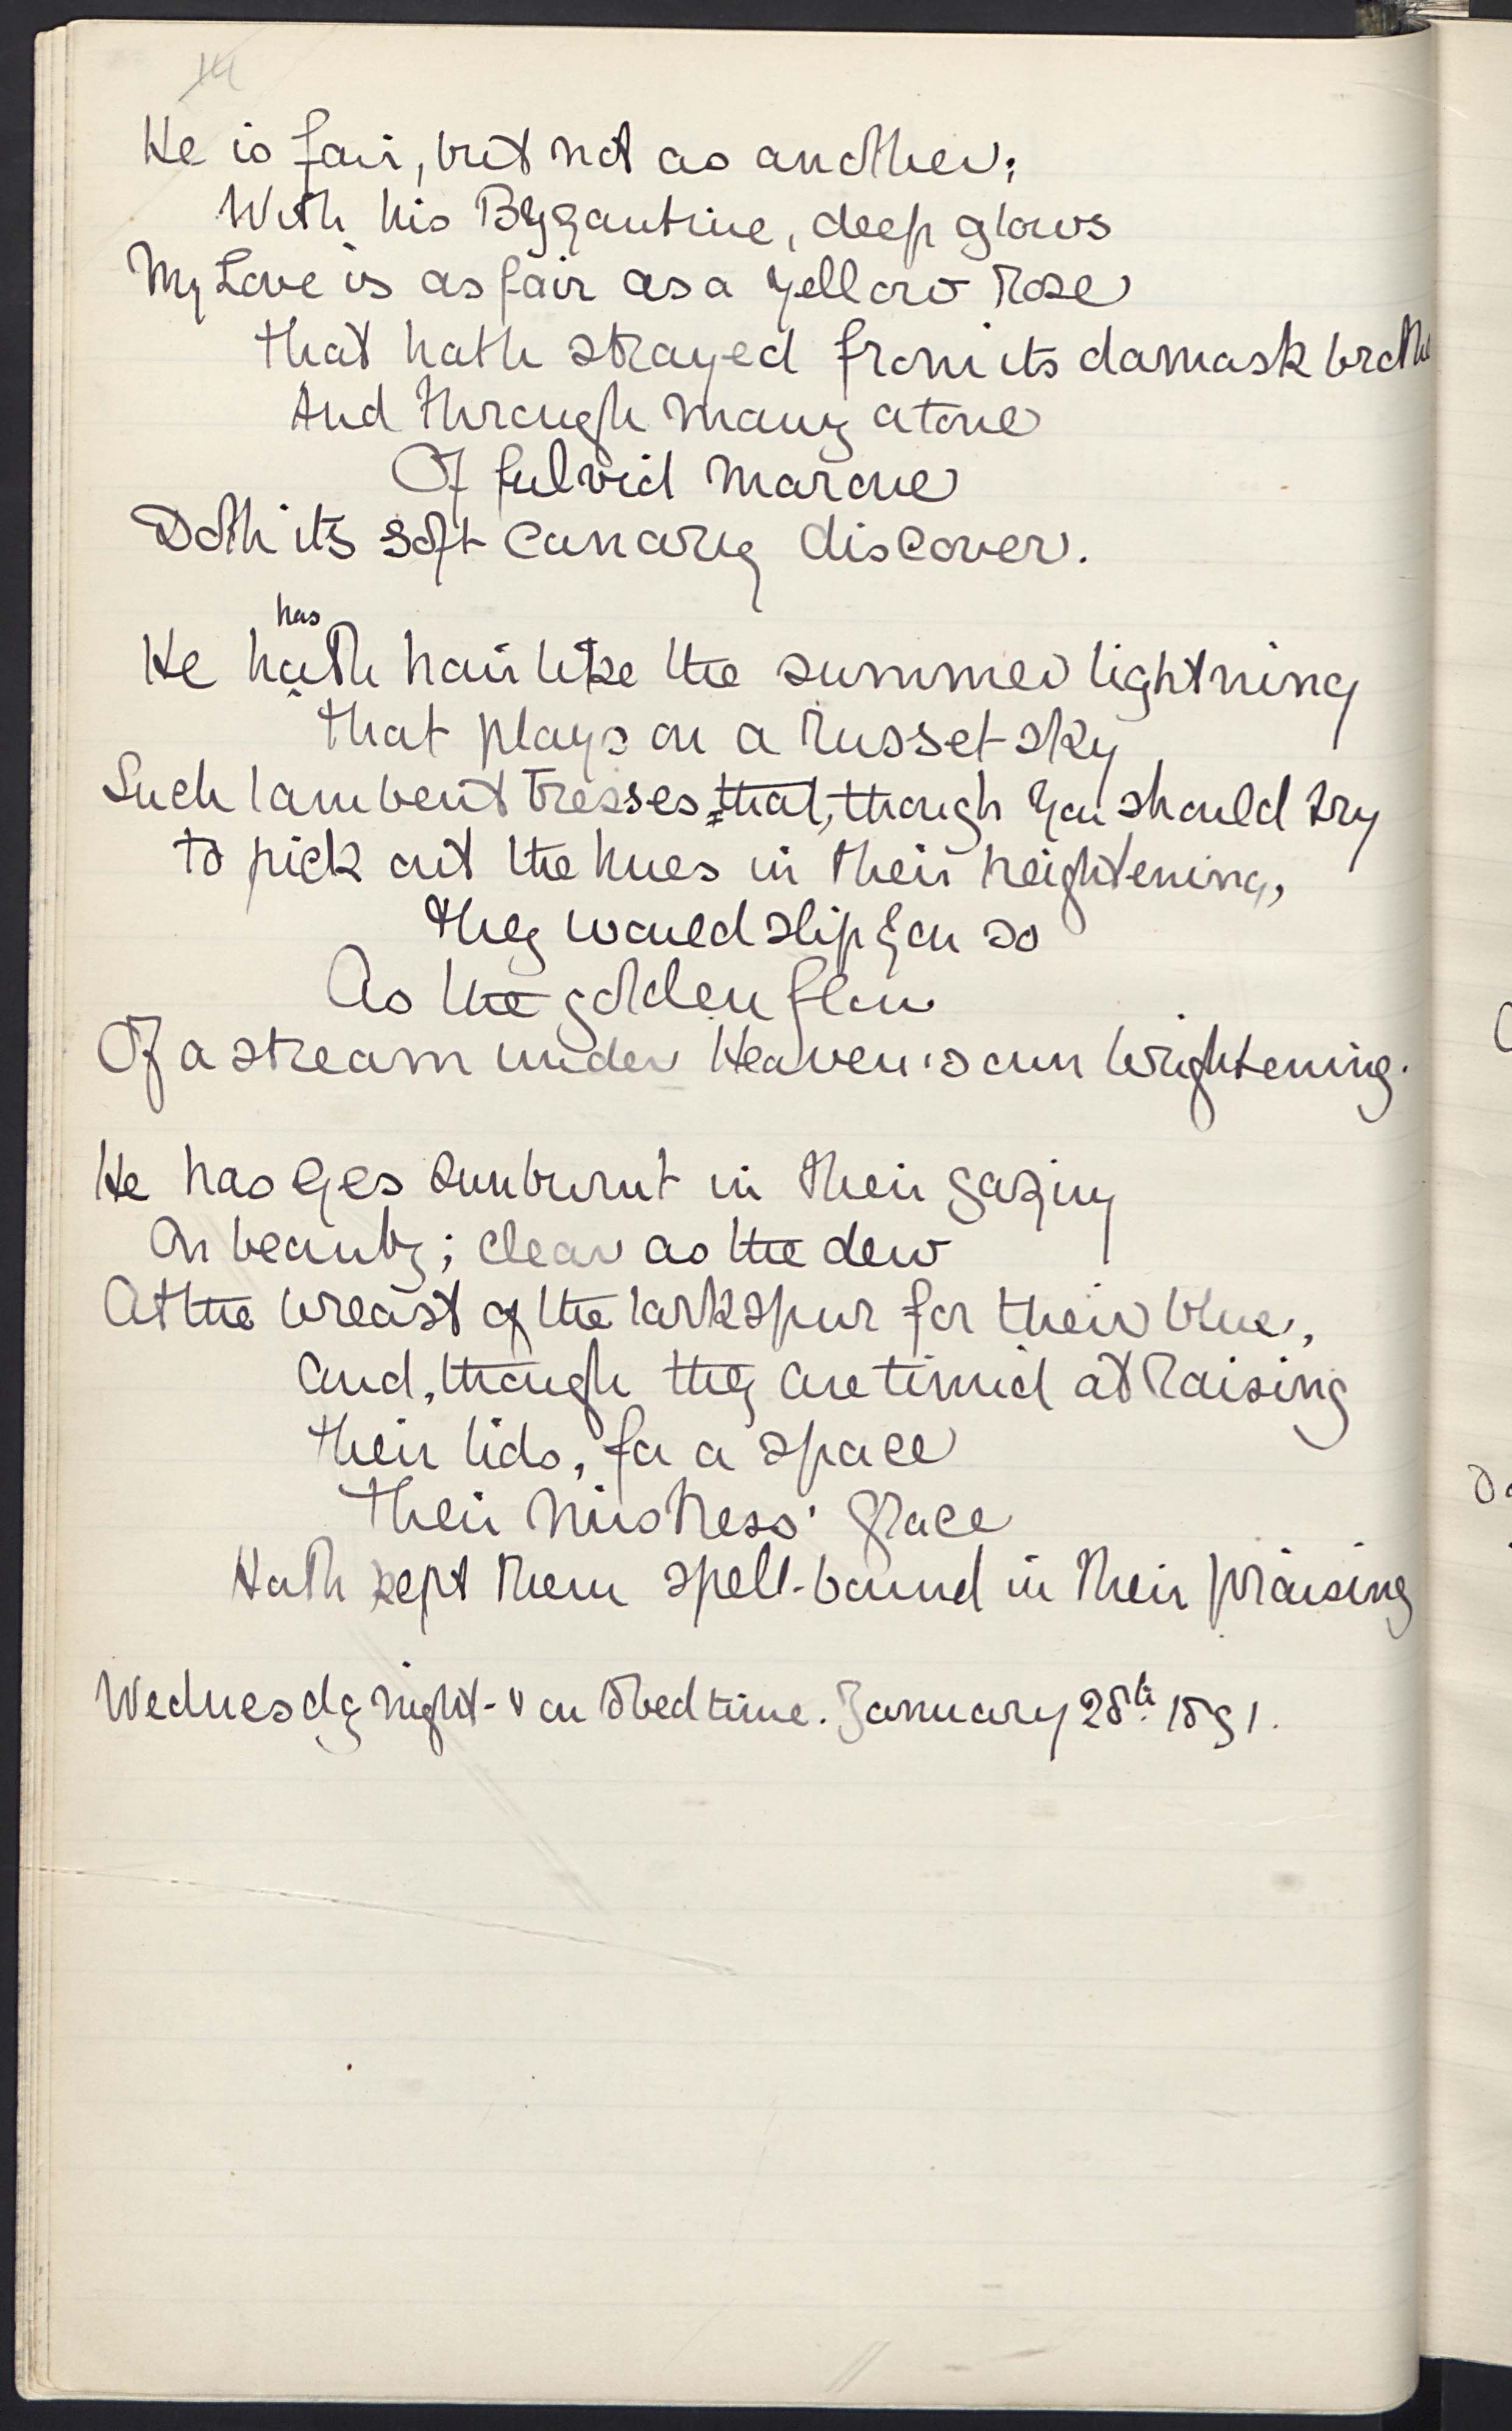 He is fair, but not as another;
With his Byzantine, deep glows
My Love is as fair as a yellow rose
that hath strayed from its damask brothe
And through many a tone
Of fulvid marone
Doth its soft canary discover.
has
He hath hair like the summer lightning
that plays on a russet sky
Such lambent tresses, that, though you should try
to pick out the hues in their heightening,
they would slip you so
As the golden flow
Of a stream under Heaven's own brightening.
He has eyes sunburnt in their gazing
On beauty; clear as the dew
At the breast of the larkspur for their blue,
And, though they are timid at raising
their lids, for a space
their mistress' grace
Hath kept them spell-bound in their praising
Wednesdy night - on to bedtime. January 28th 1891.